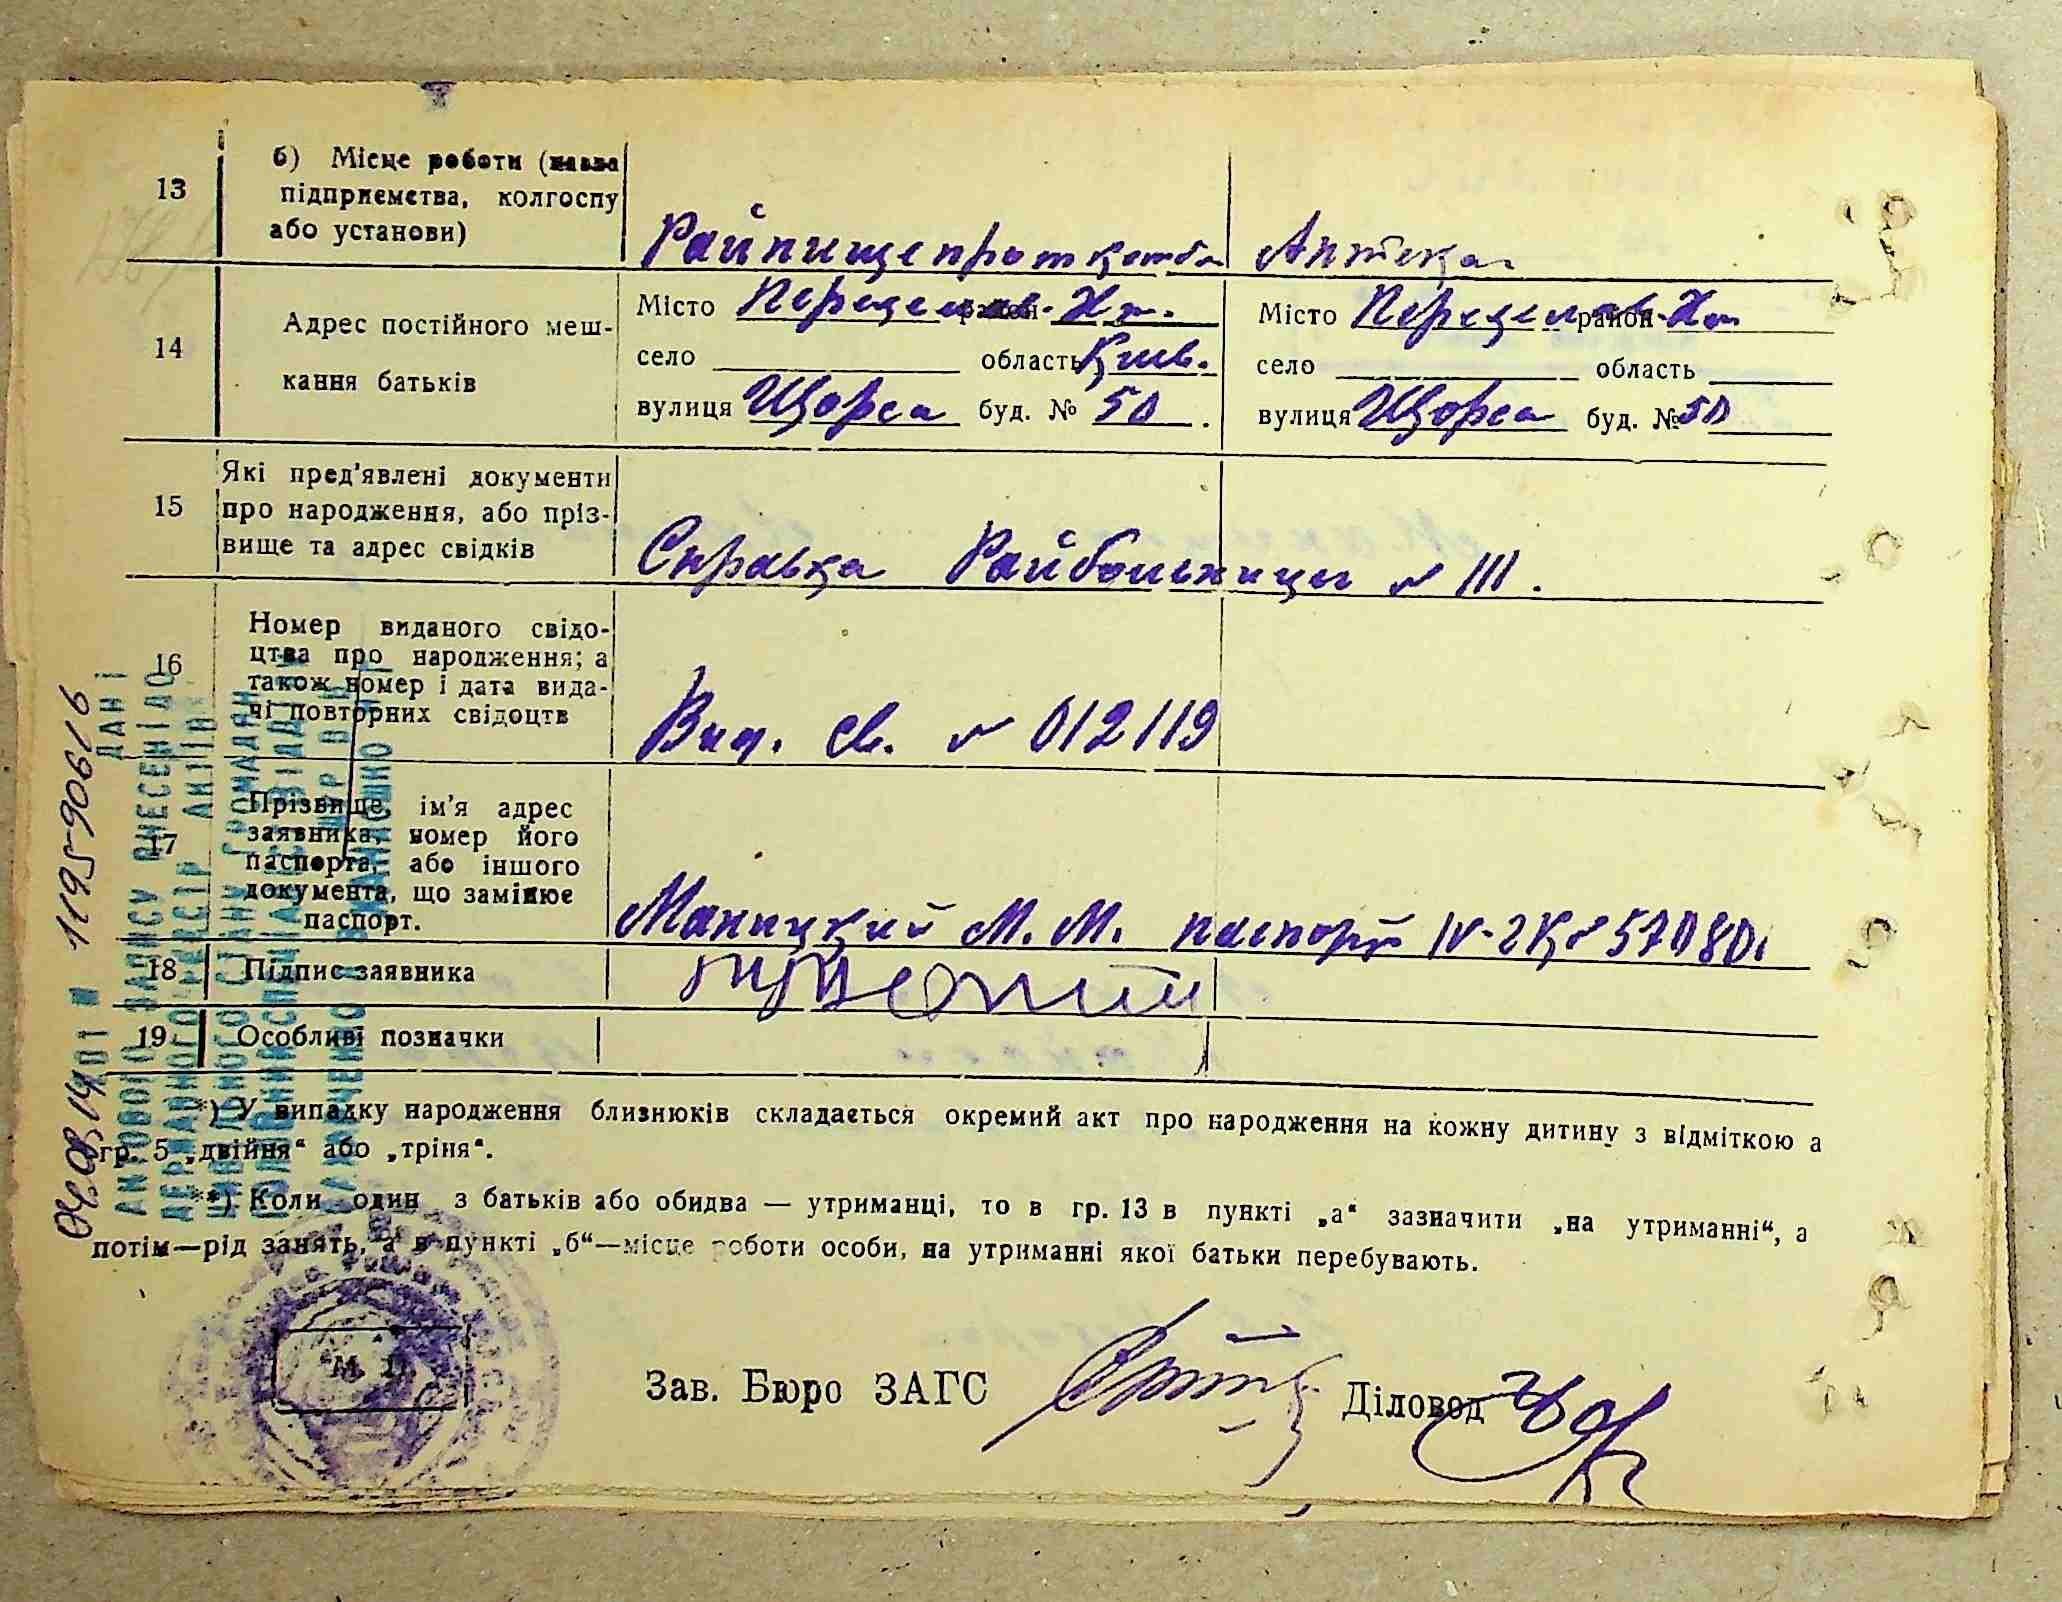 13
б) Місце роботи (назва
підприємства, колгоспу
або установи)
Райпищепромкомб.
Аптека
14
Адрес постійного меш-
кання батьків
Місто Переяслав район Хм.
село область Київ.
вулиця Щорса буд. № 50.
Місто Переяслав район Хм
село область
вулиця Щорса буд. № 50
15
Які пред'явлені документи
про народження, або пріз-
вище та адрес свідків
Справка Райбольницы № 111.
16
Номер виданого свідо-
цтва про народження; а
також номер і дата вида-
чі повторних свідоцтв
Вид. св. № 012119
17
Прізвище, ім'я адрес
заявника, номер його
паспорта, або іншого
документа, що замінює
паспорт.
Маницкий М. М. паспорт IV-ЗК № 570801
18
Підпис заявника
19
Особливі позначки
*) У випадку народження близнюків складається окремий акт про народження на кожну дитину з відміткою а
гр. 5 „двійня“ або „тріня“.
**) Коли один з батьків або обидва — утриманці, то в гр. 13 в пункті „а“ зазначити „на утриманні“, а
потім—рід занять, а в пункті „б“—місце роботи особи, на утриманні якої батьки перебувають.
М. П.
Зав. Бюро ЗАГС
Діловод
ДАНІ
АКТОВОГО ЗАПИСУ ВНЕСЕНІ ДО
ДЕРЖАВНОГО РЕЄСТР АКТІВ
ЦИВІЛЬНОГО СТАНУ ГРОМАДЯН